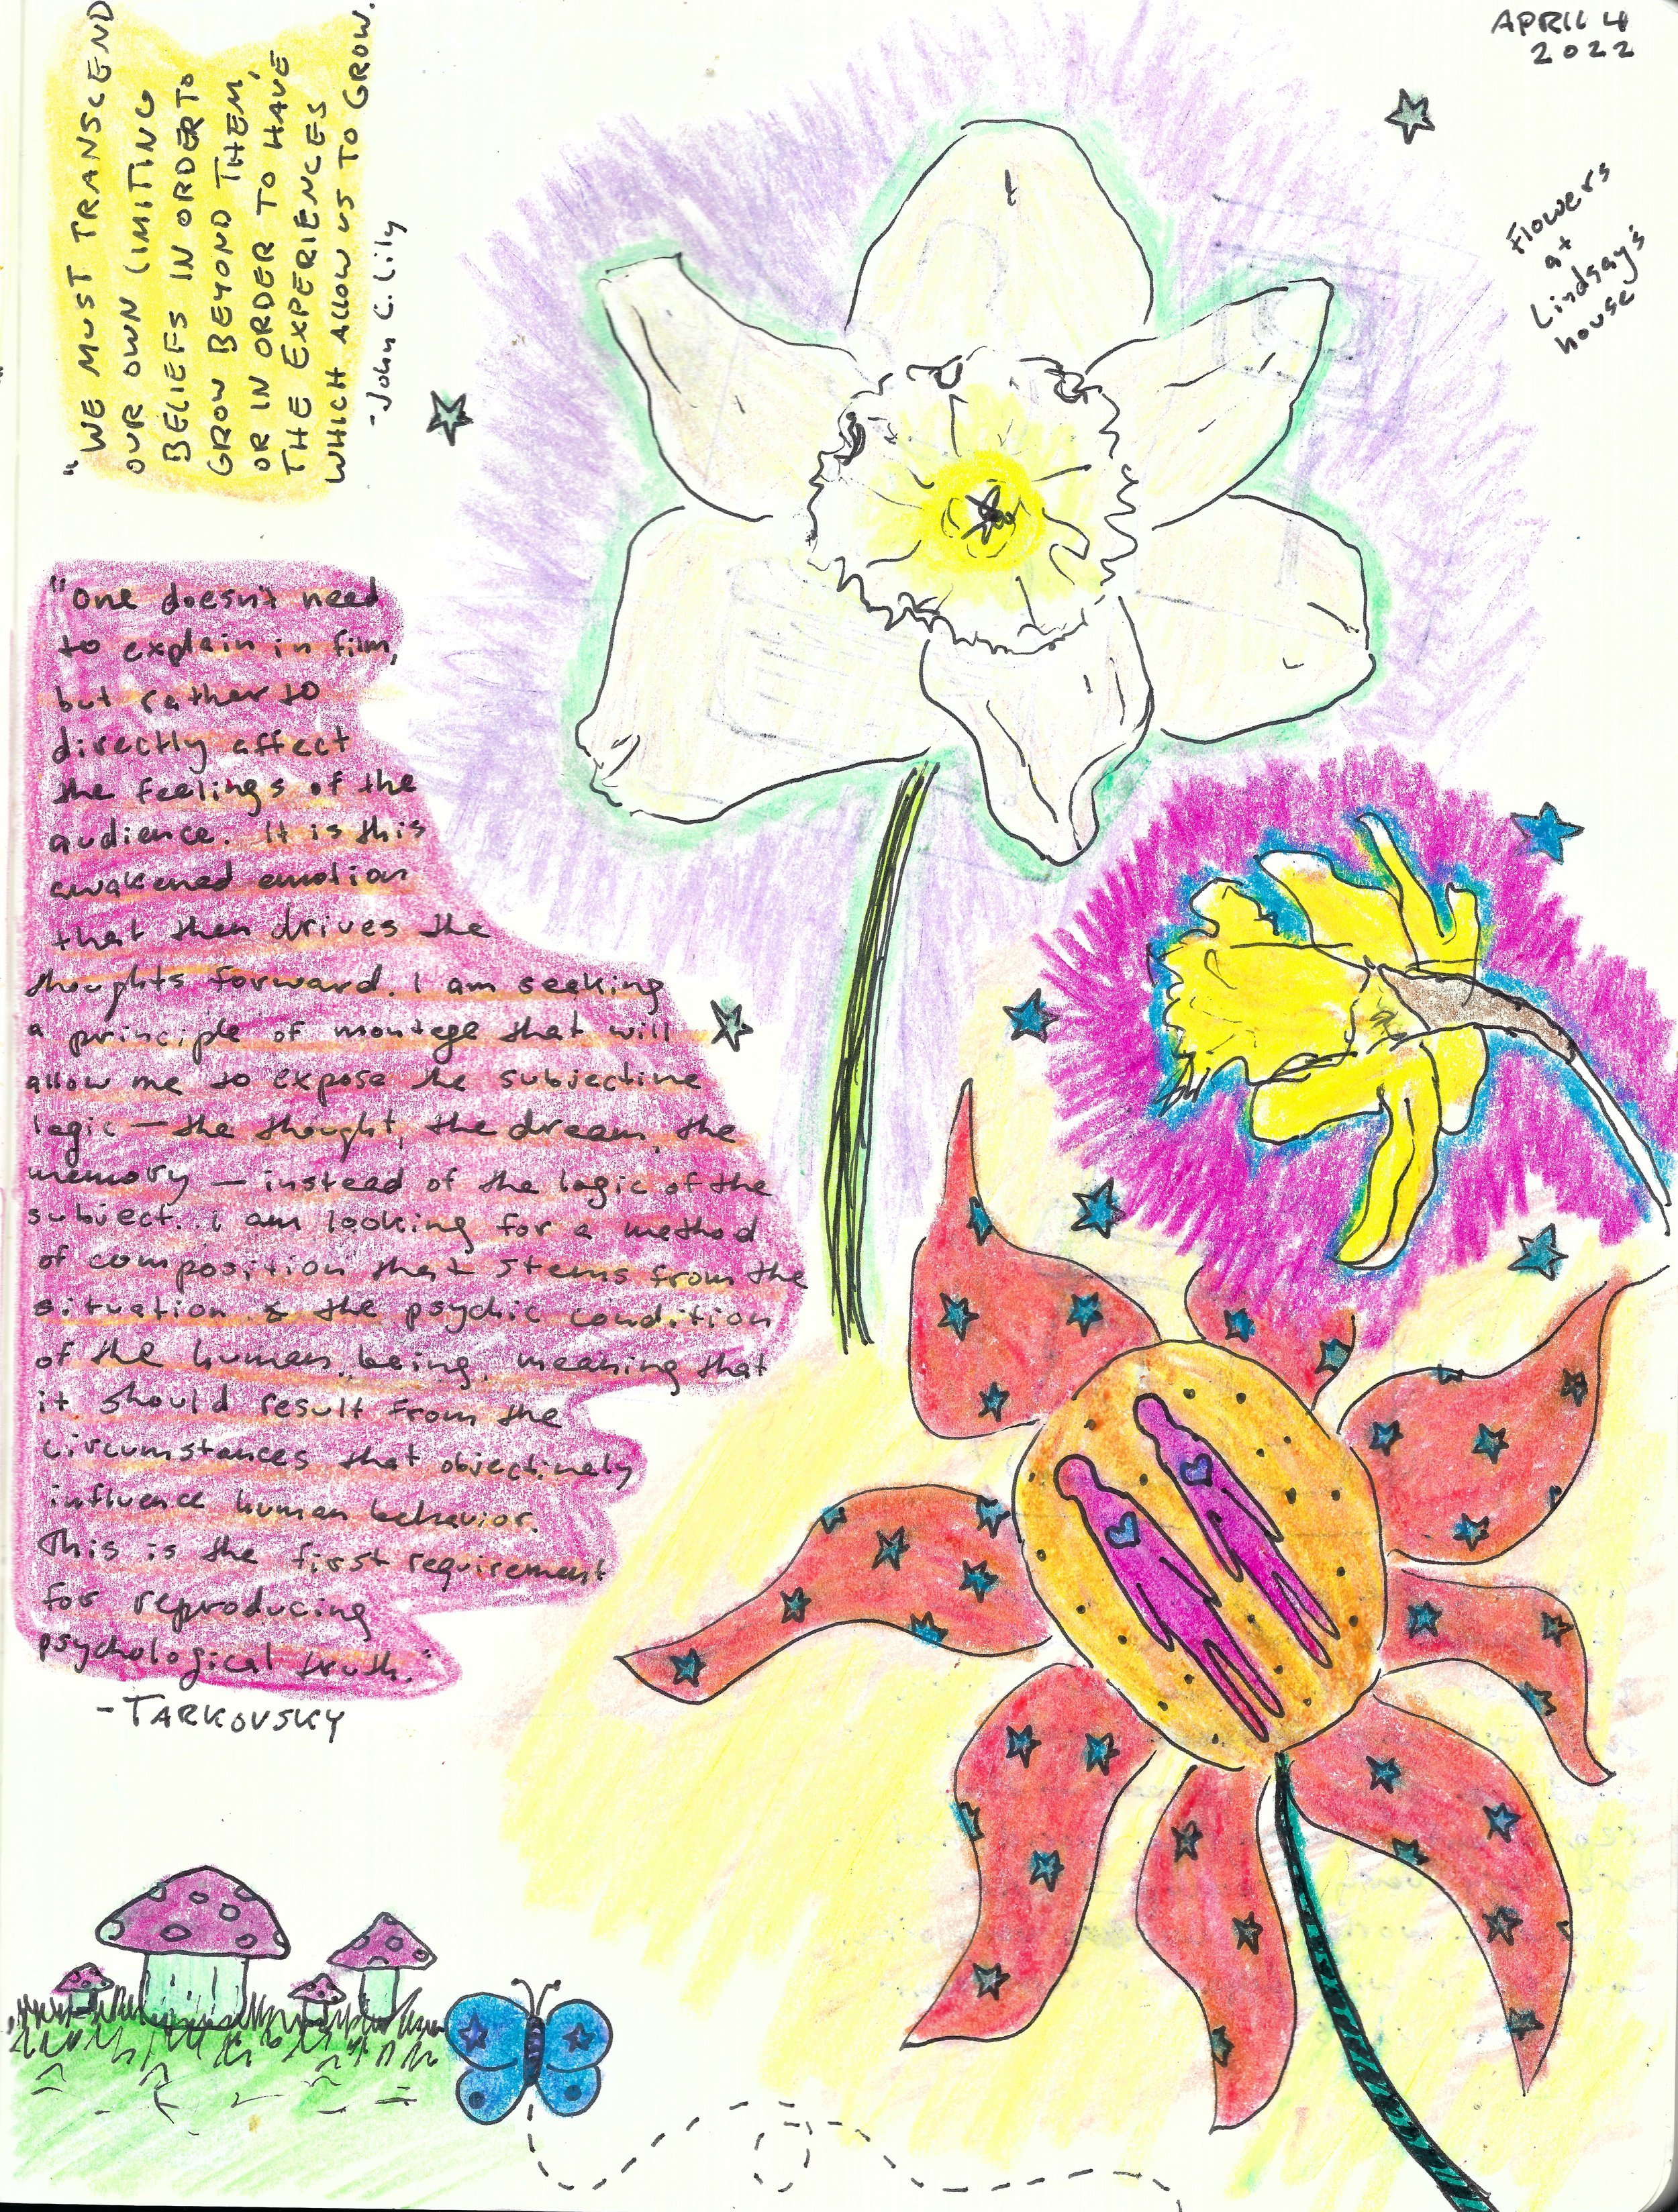 APRIL 4
2022
Flowers
at
Lindsay's
house
"WE MUST TRANSCEND
OUR OWN LIMITING
BELIEFS IN ORDER TO
GROW BEYOND THEM,
OR IN ORDER TO HAVE
THE EXPERIENCES
WHICH ALLOW US TO GROW.
-John C. Lily
"One doesn't need
to explain in film,
but rather to
directly affect
the feelings of the
audience. It is this
awakened emotion
that then drives the
thoughts forward. I am seeking
a principle of montage that will
allow me to expose the subjective
logic — the thought, the dream, the
memory — instead of the logic of the
subject. I am looking for a method
of composition that stems from the
situation & the psychic condition
of the human being, meaning that
it should result from the
circumstances that objectively
influence human behavior.
This is the first requirement
for reproducing
psychological truth."
-TARKOVSKY